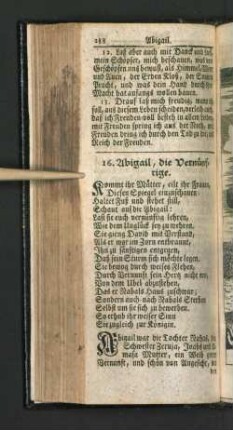 288 Abigail.
12. Laß aber auch mit Danck
mein Schöpffer, mich beschauen, was
Geschöpffen uns bewust, als Himmel,
und Auen, der Erden Kloß, der
Pracht, und was dein Hand durch
Macht hat anfangs wollen bauen.
13. Drauf laß mich freudig,
soll, aus diesem Leben scheiden,
daß ich Freuden-voll besteh in allen
mit Freuden spring ich aus der
Freuden bring ich durch den Tod
Reich der Freuden.
16. Abigail, die Vernünf-
tige.
Kommt ihr Mütter, eilt ihr Frauen,
Diesen Spiegel einzunehmen:
Haltet Fuß und stehet still,
Schaut auf die Abigail:
Laßt sie euch vernünftig lehren,
Wie dem Unglück sey zu wehren.
Sie gieng David mit Verstand,
Als er war im Zorn entbrannt,
Ihn zu sänftigen entgegen,
Daß sein Sturm sich möchte legen.
Sie drung durch weises Flehen,
Durch Vernunft sein Hertz
Von dem Übel abzustehen,
Das er Nabals Haus
Sondern auch nach Nabals Sterben
Selbst um sie sich zu bewerben.
So erhub ihr weiser Sinn
Sie zugleich zur Königin.
Abigail war die Tochter Nahas,
Schwester Zeruja, Joabs
masa Mutter, ein Weib
Vernunft, und schön von Angesicht,